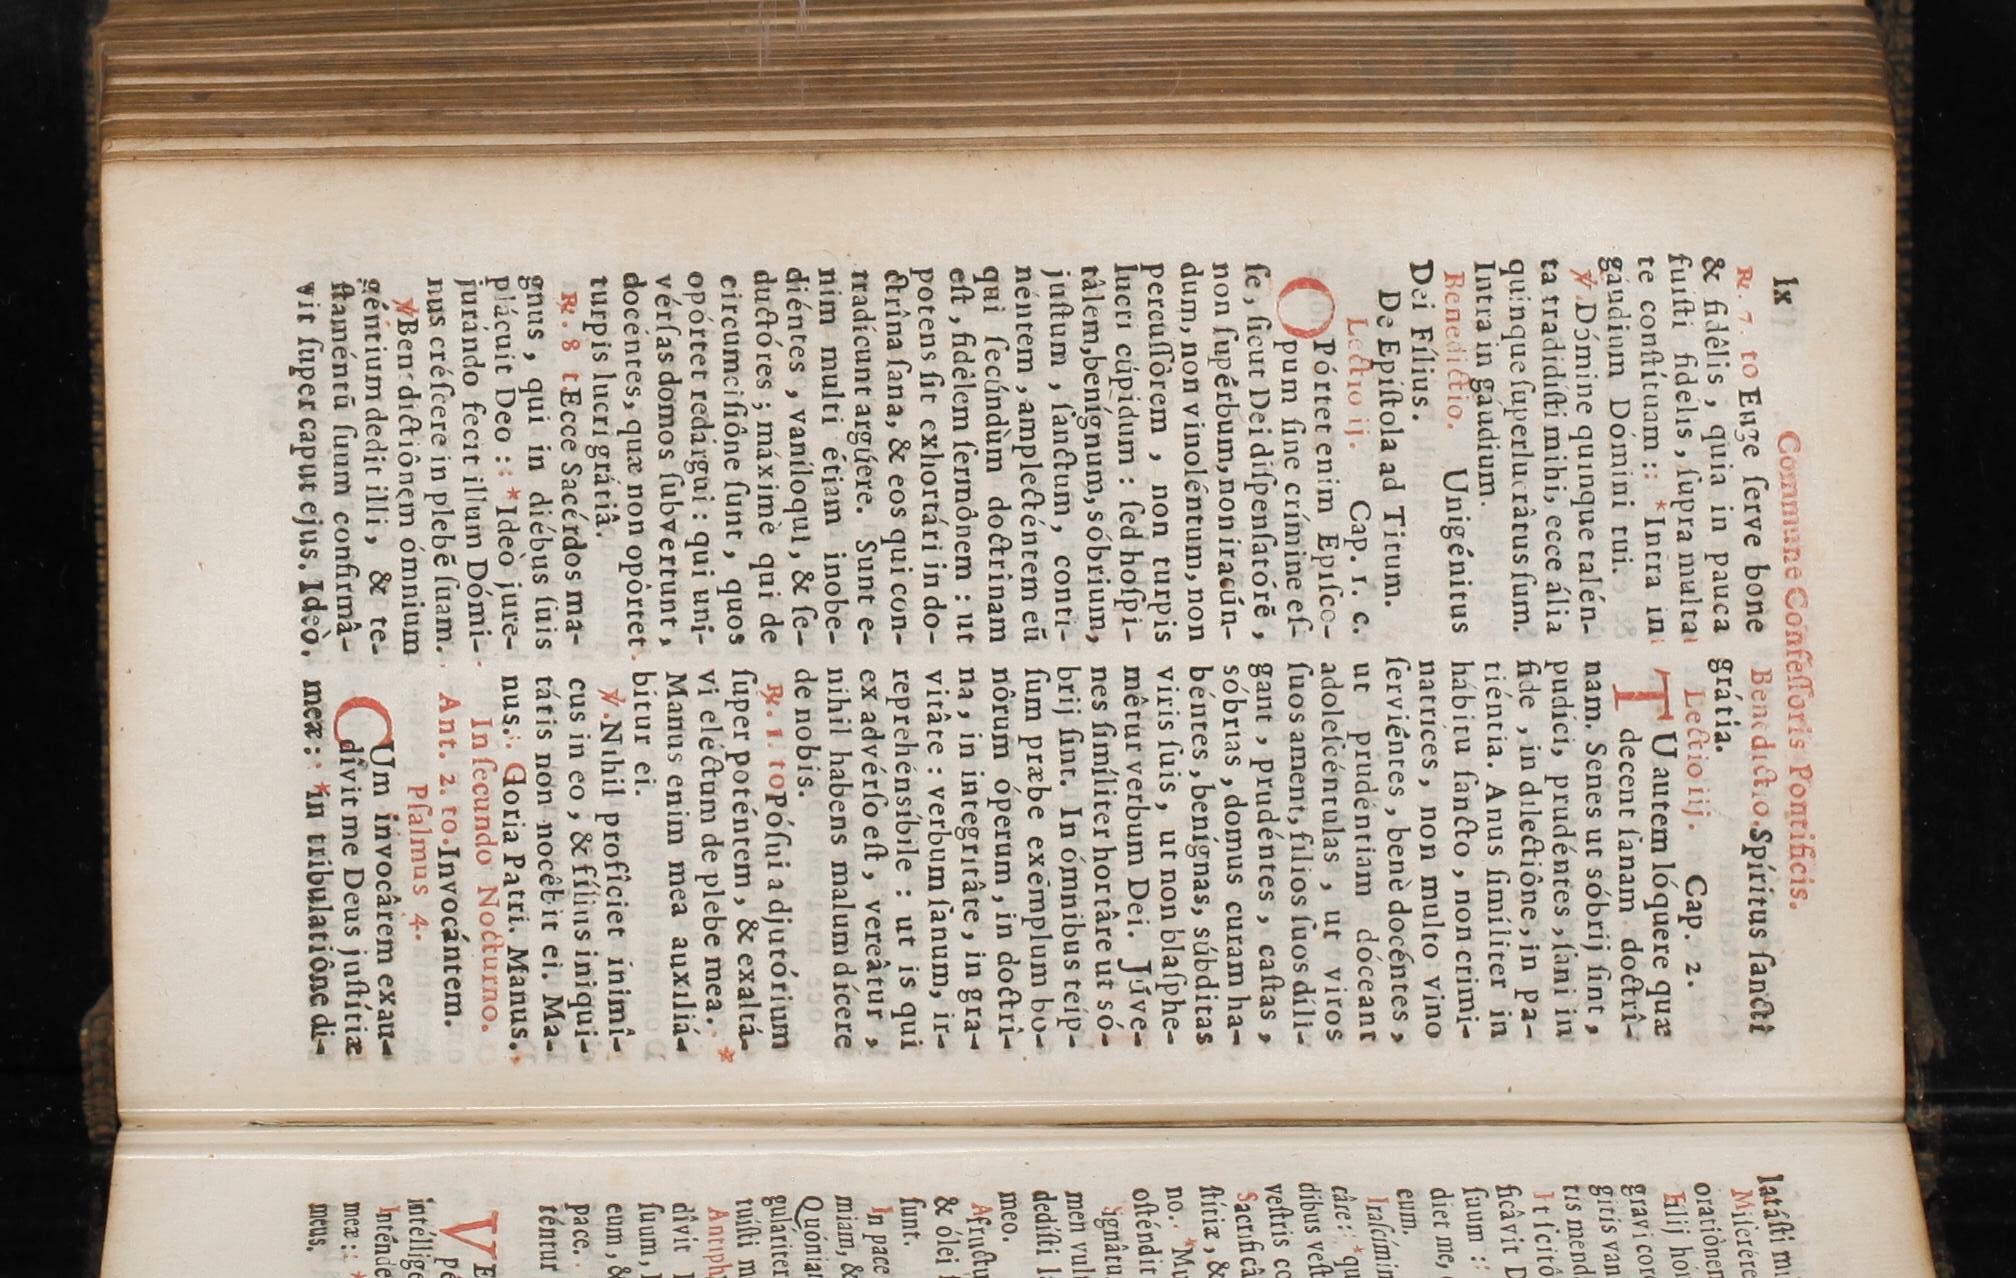 lx
Commune Confeſſoris Pontificis.
℟. 7. to Euge ſerve bone
& fidêlis, quia in pauca
fuiſti fidelis, ſupra multa
te conſtítuam :: *Intra in
gáudium Dómini tui.
℣. Dómine quinque talén-
ta tradidíſti mihi, ecce ália
quinque ſuperlucrâtus ſum.
Intra in gáudium.
Benedictio. Unigénitus
Dei Fílius.
De Epíſtola ad Titum.
Lectio ij. Cap. 1. c.
OPórtet enim Epíſco-
pum ſine crímine eſ-
ſe, ſicut Dei diſpenſatórẽ,
non ſupérbum, non iracún-
dum, non vinoléntum, non
percuſſôrem, non turpis
lucri cúpidum : ſed hoſpi-
tâlem, benígnum, sóbrium,
juſtum, ſanctum, conti-
néntem, amplecténtem eũ
qui ſecúndùm doctrinam
eſt, fidêlem ſermônem : ut
potens ſit exhortári in do-
ctrîna ſana, & eos qui con-
tradícunt argúere. Sunt e-
nim multi étiam inobe-
diéntes, vaníloqui, & ſe-
ductóres; máximè qui de
circumciſiône ſunt, quos
opórtet redárgui : qui uni-
vérſas domos ſubvertunt,
docéntes, quæ non opôrtet
turpis lucri grátiâ.
℟. 8 t Ecce Sacérdos ma-
gnus, qui in diébus ſuis
plácuit Deo :: *Ideò jure-
jurándo fecit illum Dómi-
nus créſcere in plebẽ ſuam.
℣ Benedictiônem ómnium
géntium dedit illi, & te-
ſtaméntũ ſuum confirmâ-
vit ſuper caput ejus. Ideò.
Benedictio. Spíritus ſancti
grátia.
Lectio iij. Cap. 2.
TU autem lóquere quæ
decent ſanam doctrî-
nam. Senes ut sóbrij ſint,
pudíci, prudéntes, ſani in
fide, in dilectiône, in pa-
tiéntia. Anus ſimíliter in
hábitu ſancto, non crimi-
natrices, non multo vino
ſerviéntes, benè docéntes,
ut prudéntiam dóceant
adoleſcéntulas, ut viros
ſuos ament, filios ſuos díli-
gant, prudéntes, caſtas,
sóbrias, domus curam ha-
béntes, benígnas, súbditas
viris ſuis, ut non blaſphe-
mêtur verbum Dei. Júve-
nes ſimíliter hortâre ut só-
brij ſint. In ómnibus teíp-
ſum præbe exémplum bo-
nôrum óperum, in doctrî-
na, in integritâte, in gra-
vitâte : verbum ſanum, ir-
reprehénsíbile : ut is qui
ex advérſo eſt, vereâtur,
nihil habens malum dícere
de nobis.
℟. 1. to Póſui adjutórium
ſuper poténtem, & exaltá-
vi eléctum de plebe mea. *
Manus enim mea auxiliá-
bitur ei.
℣. Nihil profíciet inimî-
cus in eo, & fílius iniqui-
tátis non nocêbit ei. Ma-
nus. Gloria Patri. Manus.
In ſecundo Nocturno.
Ant. 2. to. Invocántem.
Pſalmus 4.
CUm invocârem exau-
dîvit me Deus juſtítiæ
meæ :: *in tribulatiône di-
latáſti mi
Miſeré
oratiônem
Filij ho
gravi cor
gitis van
tis mend
Et ſcitô
ficâvit D
ſuum ::
diet me,
eum.
Iraſcímin
câre :: *qu
dibus veſt
veſtris co
Sacrificâ
ſtítiæ, &
no. *Mu
oſténdit
Signâtu
men vul
dedíſti l
meo.
A fructu
& ólei
ſunt.
In pace
miam, &
Quóniam
guláriter
tuíſti m
Antiph
dîvit
ſuum,
eum, &
pace.
téntur
VE
pe
intéllige
Inténde
meæ :: *
meus.